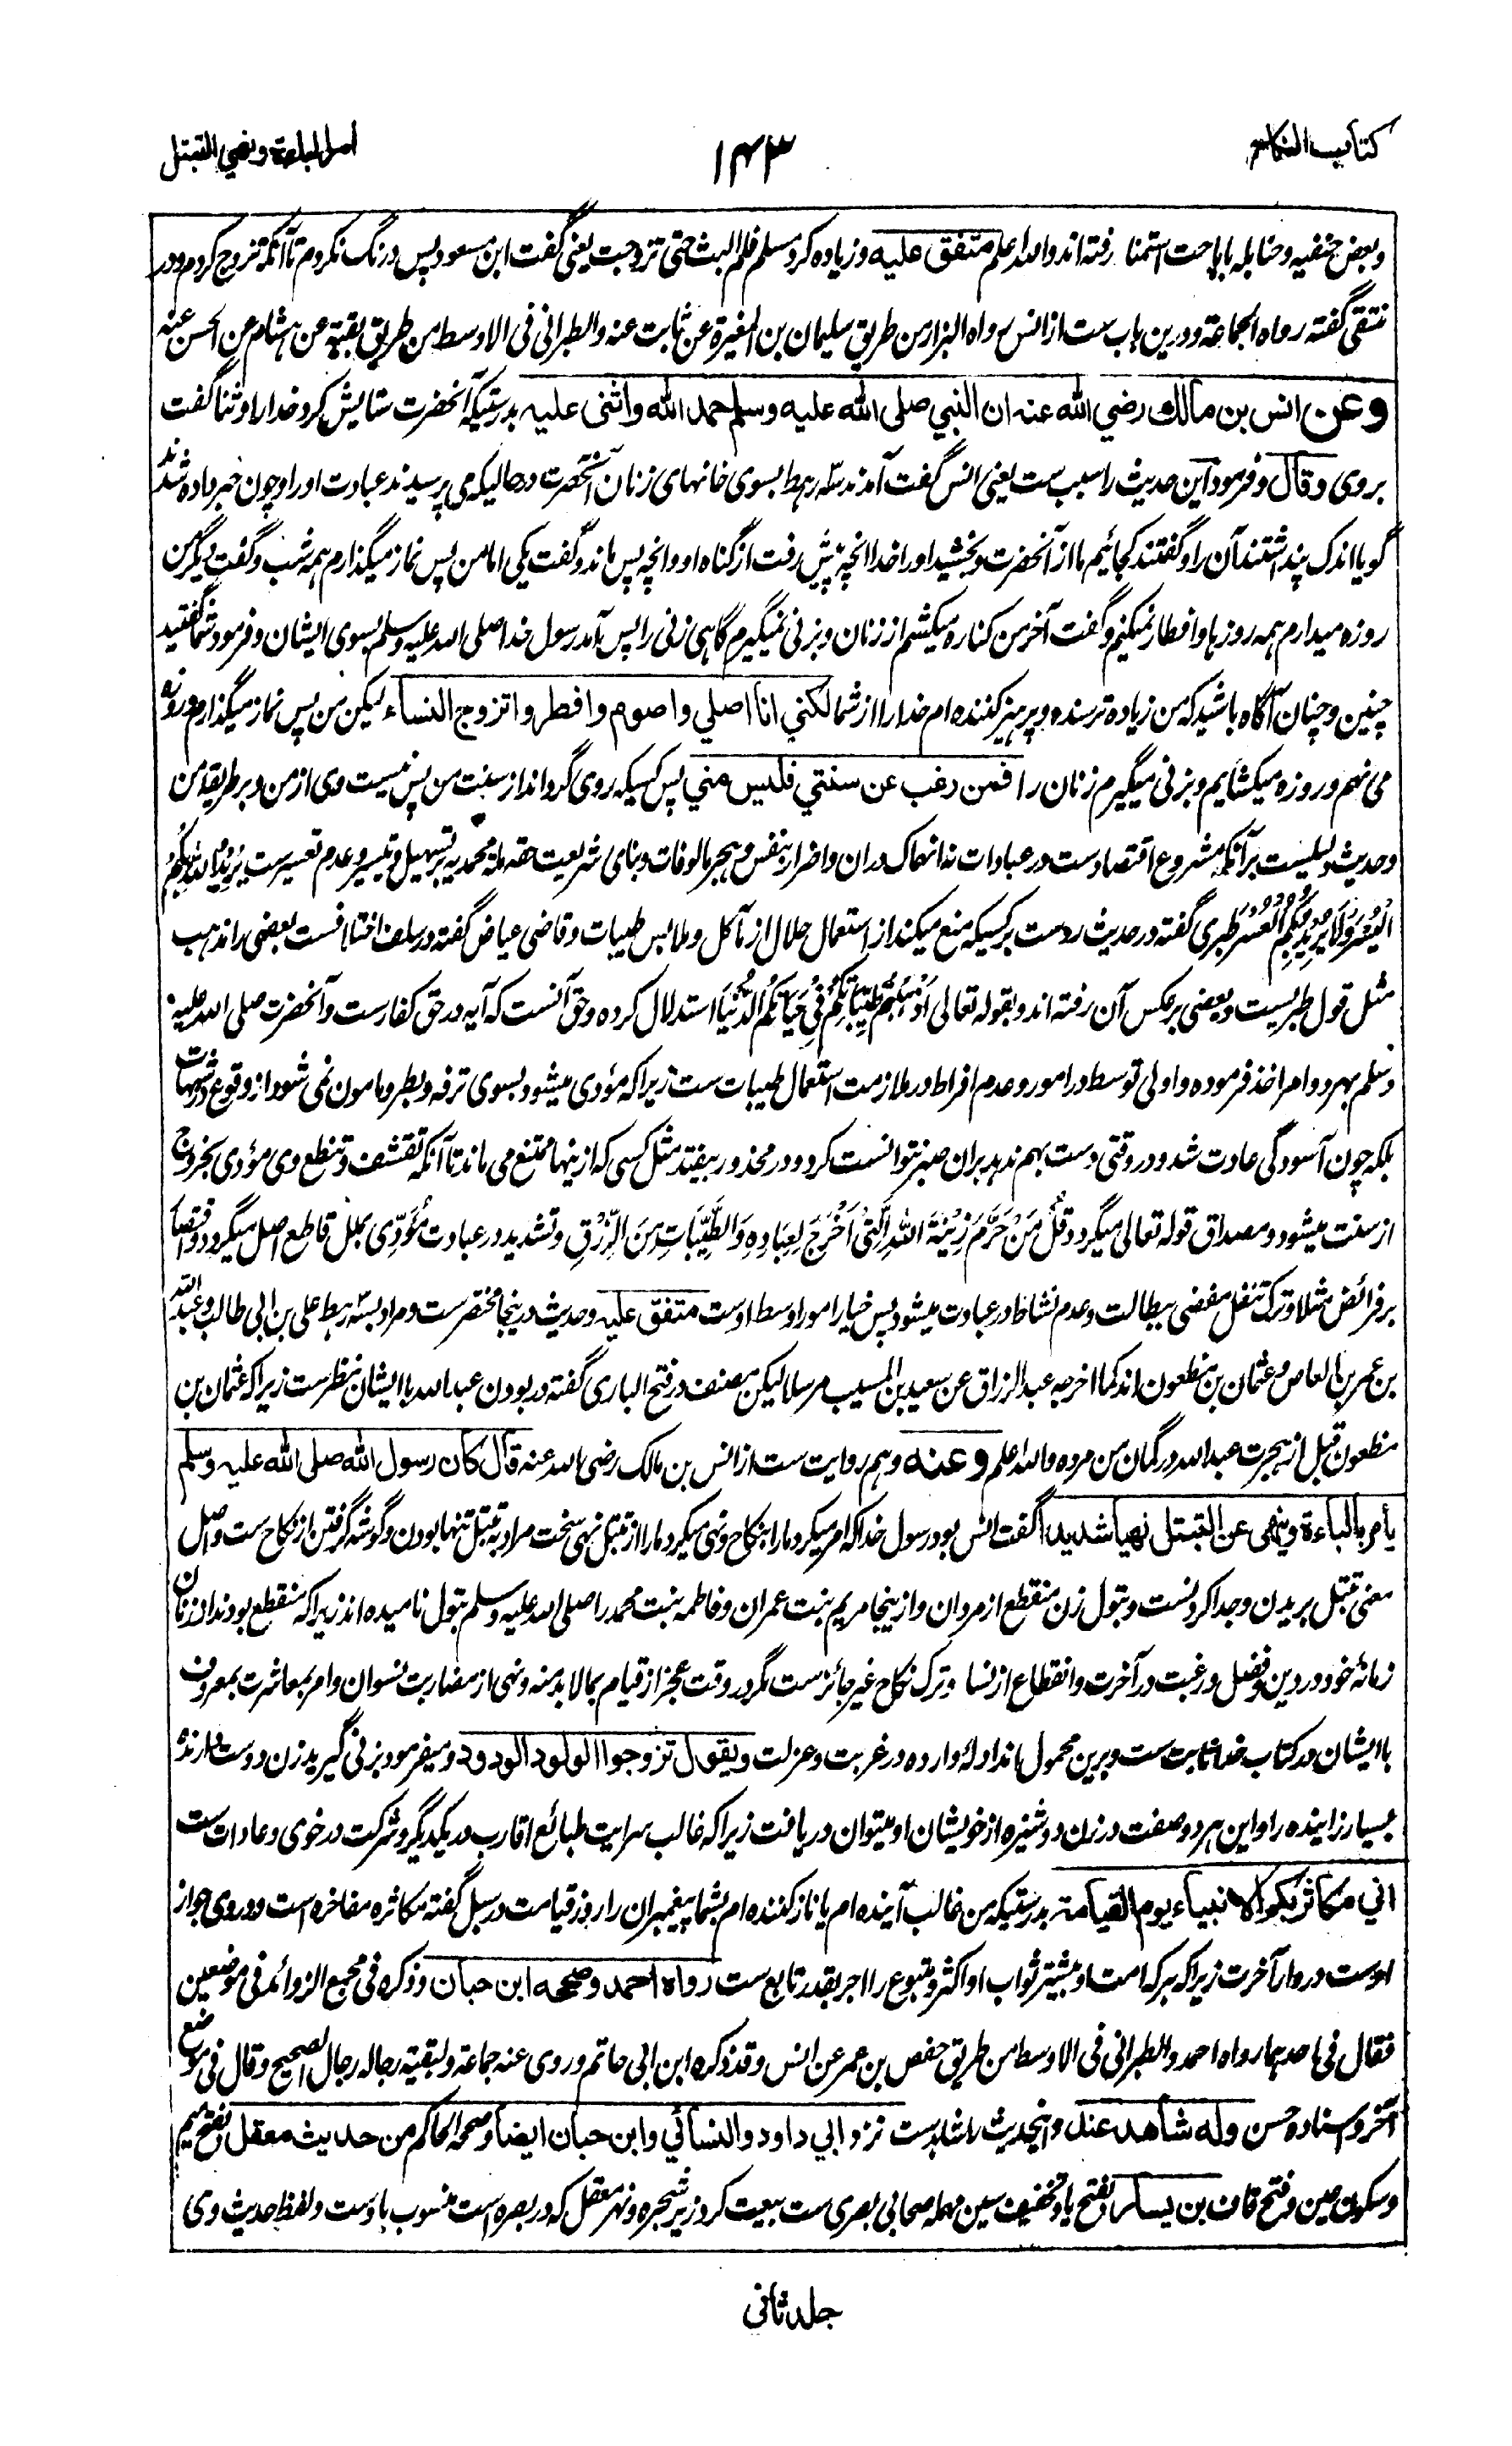 كتاب النكاح
١٤٣
امر الباءة ونهي التبتل
وبعض حنفیه وحنابله باباحت استمنا رفته اند والله اعلم متفق علیه وزیاده کرد مسلم فلم البث حتی تزوجت یعنی گفت ابن مسعود پس درنگ نکردم تا آنکه تزوج کردم ودر
منتقی گفته رواه الجماعة ودرین باب ست از انس رواه البزار من طریق سلیمان بن المغیرة عن ثابت عنه والطبرانی فی الاوسط من طریق بقیة عن هشام عن الحسن عنه
وعن انس بن مالك رضي الله عنه ان النبي صلى الله عليه وسلم حمد الله واثنى عليه بدرستیکه آنحضرت ستایش کرد خدا را وثنا گفت
بروی وقال وفرمود این حدیث را سبب ست یعنی انس گفت آمدند سه رهط بسوی خانهای زنان آنحضرت در حالیکه می پرسیدند عبادت او را وچون خبر داده شدند
گویا اندک پنداشتند آن را وگفتند کجائیم ما از آنحضرت وبخشید او را خدا آنچه پیش رفت از گناه او وآنچه پس ماند وگفت یکی اما من پس نماز میگذارم همه شب وگفت دیگر من
روزه میدارم همه روزها وافطار نمیکنم وگفت آخر من کناره میکشم از زنان وبزنی نمیگیرم گاهی زنی را پس آمد رسول خدا صلی الله علیه وسلم بسوی ایشان وفرمود شما گفتید
چنین وچنان آگاه باشید که من زیاده ترسنده وپرهیز کننده ام خدا را از شما لكني انا اصلي واصوم وافطر واتزوج النساء لیکن من پس نماز میگذارم وروزه
می نهم وروزه میکشایم وبزنی میگیرم زنان را فمن رغب عن سنتي فليس مني پس کسیکه روی گرداند از سنت من پس نیست وی از من وبر طریقه من
وحدیث دلیلست بر آنکه مشروع اقتصادست در عبادات نه انهماک دران واضرار بنفس وهجر مالوفات وبنای شریعت حقه محمدیه بر تسهیل وتیسیر وعدم تعسیرست يُرِيْدُ اللّٰهُ بِكُمُ
الْيُسْرَ وَلَا يُرِيْدُ بِكُمُ الْعُسْرَ طبری گفته در حدیث ردست بر کسیکه منع میکند از استعمال حلال از مآکل وملابس طیبات وقاضی عیاض گفته در سلف اختلافست بعضی را مذهب
مثل قول طبریست وبعضی بر عکس آن رفته اند وبقوله تعالی اَذْهَبْتُمْ طَيِّبَاتِكُمْ فِيْ حَيَاتِكُمُ الدُّنْيَا استدلال کرده وحق آنست که آیه در حق کفارست وآنحضرت صلی الله علیه
وسلم بهر دو امر اخذ فرموده واولی توسط در امور وعدم افراط در ملازمت استعمال طیبات ست زیرا که مؤدی میشود بسوی ترفه وبطر ومامون نمی شود از وقوع در شبهات
بلکه چون آسودگی عادت شد ودر وقتی دست بهم ندهد بران صبر نتوانست کرد ودر محذور بیفتد مثل کسی که ازینها ممتنع می ماند تا آنکه تقشف وتنطع وی مؤدی بخروج
از سنت میشود ومصداق قوله تعالی میگردد قُلْ مَنْ حَرَّمَ زِيْنَةَ اللّٰهِ الَّتِيْ اَخْرَجَ لِعِبَادِهٖ وَالطَّيِّبَاتِ مِنَ الرِّزْقِ وتشدید در عبادت مؤدی بملل قاطع اصل میگردد واقتصار
بر فرائض مثلا وترک تنفل مفضی ببطالت وعدم نشاط در عبادت میشود پس خیار امور اوسط اوست متفق عليه وحدیث درینجا مختصرست ومراد بسه رهط علی بن ابی طالب وعبد الله
بن عمرو بن العاص وعثمان بن مظعون اند کما اخرجه عبد الرزاق عن سعید بن المسیب مرسلا لیکن مصنف در فتح الباری گفته در بودن عبد الله با ایشان نظرست زیرا که عثمان بن
مظعون قبل از هجرت عبد الله در گمان من مرده والله اعلم وعنه وهم روایت ست از انس بن مالک رضی الله عنه قال كان رسول الله صلى الله عليه وسلم
يأمر بالباءة وينهى عن التبتل نهيا شديدا گفت انس بود رسول خدا که امر میکرد ما را بنکاح ونهی میکرد ما را از تبتل نهی سخت مراد به تبتل تنها بودن وگوشه گرفتن از نکاح ست واصل
معنی تبتل بریدن وجدا کردنست وبتول زن منقطع از مردان وازینجا مریم بنت عمران وفاطمه بنت محمد را صلی الله علیه وسلم بتول نامیده اند زیرا که منقطع بودند از زنان
زمانهٔ خود در دین وفضل ورغبت در آخرت وانقطاع از نسا وترک نکاح غیر جائزست مگر در وقت عجز از قیام بمالا بد منه ونهی از مضاربت نسوان وامر بمعاشرت بمعروف
با ایشان در کتاب خدا ثابت ست وبرین محمول باند ادلهٔ وارده در غربت وعزلت ويقول تزوجوا الولود الودود ومیفرمود بزنی گیرید زن دوست دارنده
بسیار زاینده را واین هر دو صفت در زن دوشیزه از خویشان او میتوان دریافت زیرا که غالب سرایت طبائع اقارب در یکدیگر وشرکت در خوی وعادات ست
اني مكاثر بكم الانبياء يوم القيامة بدرستیکه من غالب آینده ام یا ناز کننده ام بشما پیغمبران را روز قیامت در سبل گفته مکاثره مفاخره است ودر وی جواز
اوست در دار آخرت زیرا که هر که امت او بیشتر ثواب او اکثر ومتبوع را اجر بقدر تابع ست رواه احمد وصححه ابن حبان وذکره فی مجمع الزوائد فی موضعین
فقال فی احدهما رواه احمد والطبرانی فی الاوسط من طریق حفص بن عمر عن انس وقد ذکره ابن ابی حاتم وروی عنه جماعة وبقیة رجاله رجال الصحیح وقال فی موضع
آخر واسناده حسن وله شاهد عند واینحدیث را شاهدست نزد ابي داود والنسائي وابن حبان ايضا وصححه الحاكم من حديث معقل بفتح میم
وسکون عین وفتح قاف بن يسار بفتح یا وتخفیف سین مهمله صحابی بصری ست بیعت کرد زیر شجره ونهر معقل که در بصره است منسوب باوست ولفظ حدیث وی
جلد ثاني